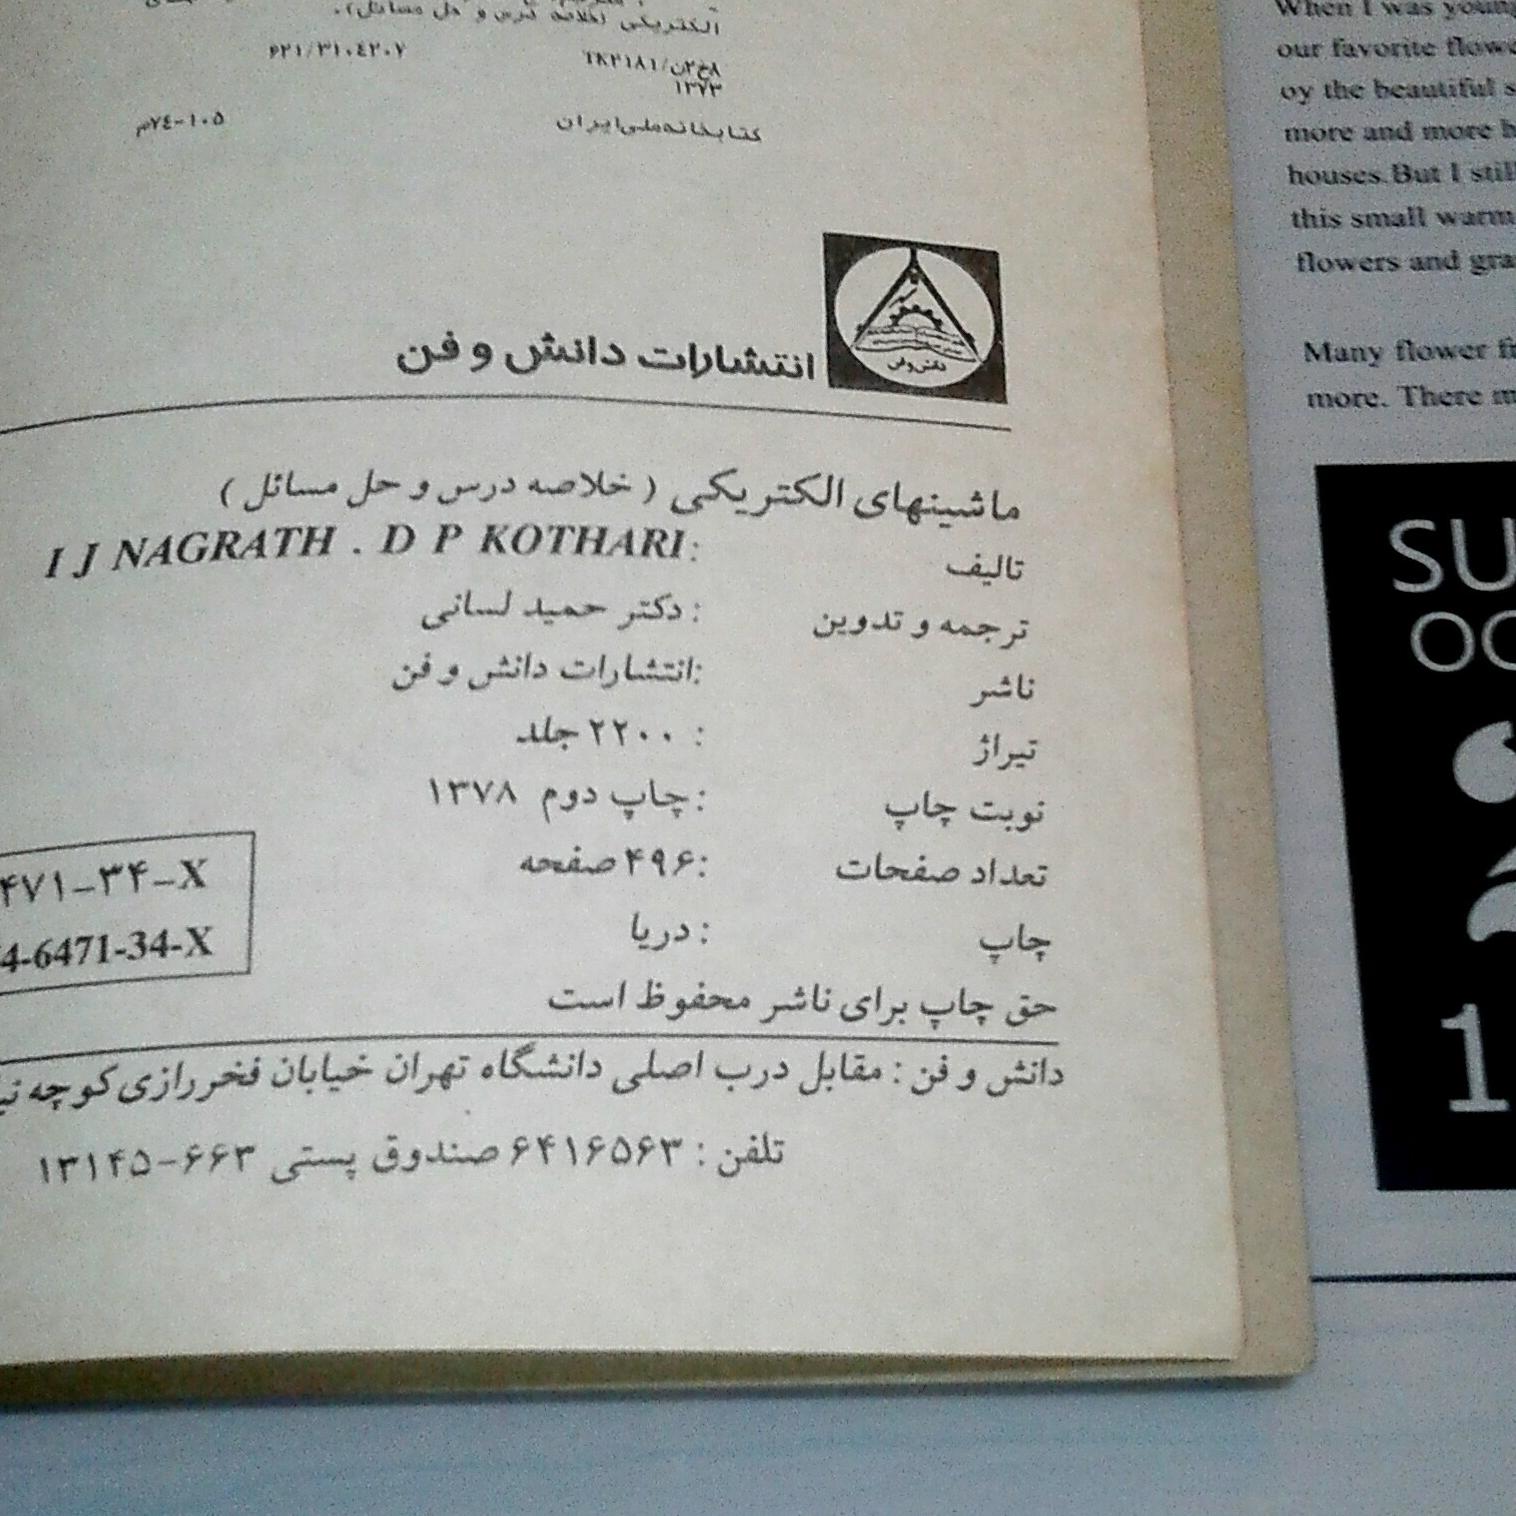 الکتریکی (خلاصه درس و حل مسائل).
۸خ۲ن/TK۲۱۸۱ ۶۲۱/۳۱۰٤۲۰۷
۱۳۷۳
کتابخانه ملی ایران ۷٤-۱۰۵م
دانش و فن
انتشارات دانش و فن
ماشینهای الکتریکی ( خلاصه درس و حل مسائل )
تالیف :I J NAGRATH . D P KOTHARI
ترجمه و تدوین : دکتر حمید لسانی
ناشر :انتشارات دانش و فن
تیراژ : ۲۲۰۰ جلد
نوبت چاپ :چاپ دوم ۱۳۷۸
تعداد صفحات :۴۹۶ صفحه
چاپ : دریا
حق چاپ برای ناشر محفوظ است
۴۷۱-۳۴-X
4-6471-34-X
دانش و فن : مقابل درب اصلی دانشگاه تهران خیابان فخررازی کوچه
تلفن : ۶۴۱۶۵۶۳ صندوق پستی ۶۶۳-۱۳۱۴۵
When I was young
our favorite
oy the beautiful
more and more
houses.But I still
this small warm
flowers and
Many flower
more. There
SU
OC
1